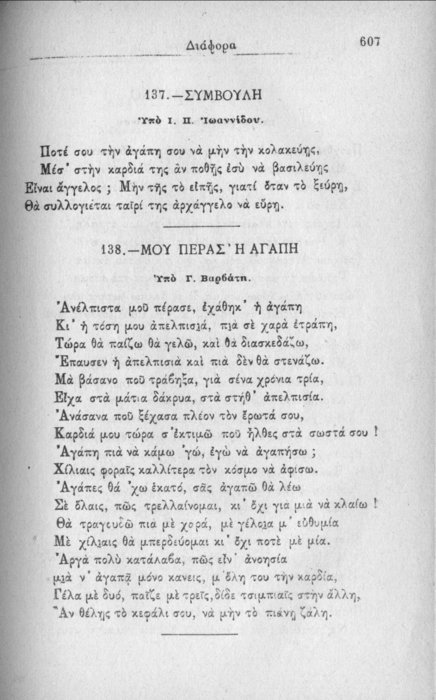 Διάφορα 607
137.—ΣΥΜΒΟΥΛΗ
Ὑπὸ Ι. Π. Ἰωαννίδου.
Ποτέ σου τὴν ἀγάπη σου νὰ μὴν τὴν κολακεύῃς,
Μέσ' στὴν καρδιά της ἂν ποθῇς ἐσὺ νὰ βασιλεύῃς
Εἶναι ἄγγελος ; Μὴν τῆς τὸ εἰπῇς, γιατί ὅταν τὸ ξεύρῃ,
Θὰ συλλογιέται ταῖρί της ἀρχάγγελο νὰ εὕρῃ.
138.—ΜΟΥ ΠΕΡΑΣ' Η ΑΓΑΠΗ
Ὑπὸ Γ. Βαρβάτη.
Ἀνέλπιστα μοῦ πέρασε, ἐχάθηκ' ἡ ἀγάπη
Κι' ἡ τόση μου ἀπελπισιά, πιὰ σὲ χαρὰ ἐτράπη,
Τώρα θὰ παίζω θὰ γελῶ, καὶ θὰ διασκεδάζω,
Ἔπαυσεν ἡ ἀπελπισιὰ καὶ πιὰ δὲν θὰ στενάζω.
Μὰ βάσανο ποῦ τράβηξα, γιὰ σένα χρόνια τρία,
Εἶχα στὰ μάτια δάκρυα, στὰ στήθ' ἀπελπισία.
Ἀνάσανα ποῦ ξέχασα πλέον τὸν ἔρωτά σου,
Καρδιά μου τώρα σ' ἐκτιμῶ ποῦ ἦλθες στὰ σωστά σου !
Ἀγάπη πιὰ νὰ κάμω 'γώ, ἐγὼ νὰ ἀγαπήσω ;
Χίλιαις φοραῖς καλλίτερα τὸν κόσμο νὰ ἀφίσω.
Ἀγάπες θά 'χω ἑκατό, σᾶς ἀγαπῶ θὰ λέω
Σὲ ὅλαις, πῶς τρελλαίνομαι, κι' ὄχι γιὰ μιὰ νὰ κλαίω !
Θὰ τραγουδῶ πιὰ μὲ χαρά, μὲ γέλοια μ' εὐθυμία
Μὲ χίλιαις θὰ μπερδεύομαι κι' ὄχι ποτὲ μὲ μία.
Ἀργὰ πολὺ κατάλαβα, πῶς εἶν' ἀνοησία
μιὰ ν' ἀγαπᾷ μόνο κανεις, μ' ὅλη του τὴν καρδία,
Γέλα μὲ δυό, παῖζε μὲ τρεῖς, δίδε τσιμπιαῖς στὴν ἄλλη,
Ἂν θέλῃς τὸ κεφάλι σου, νὰ μὴν τὸ πιάνῃ ζάλη.